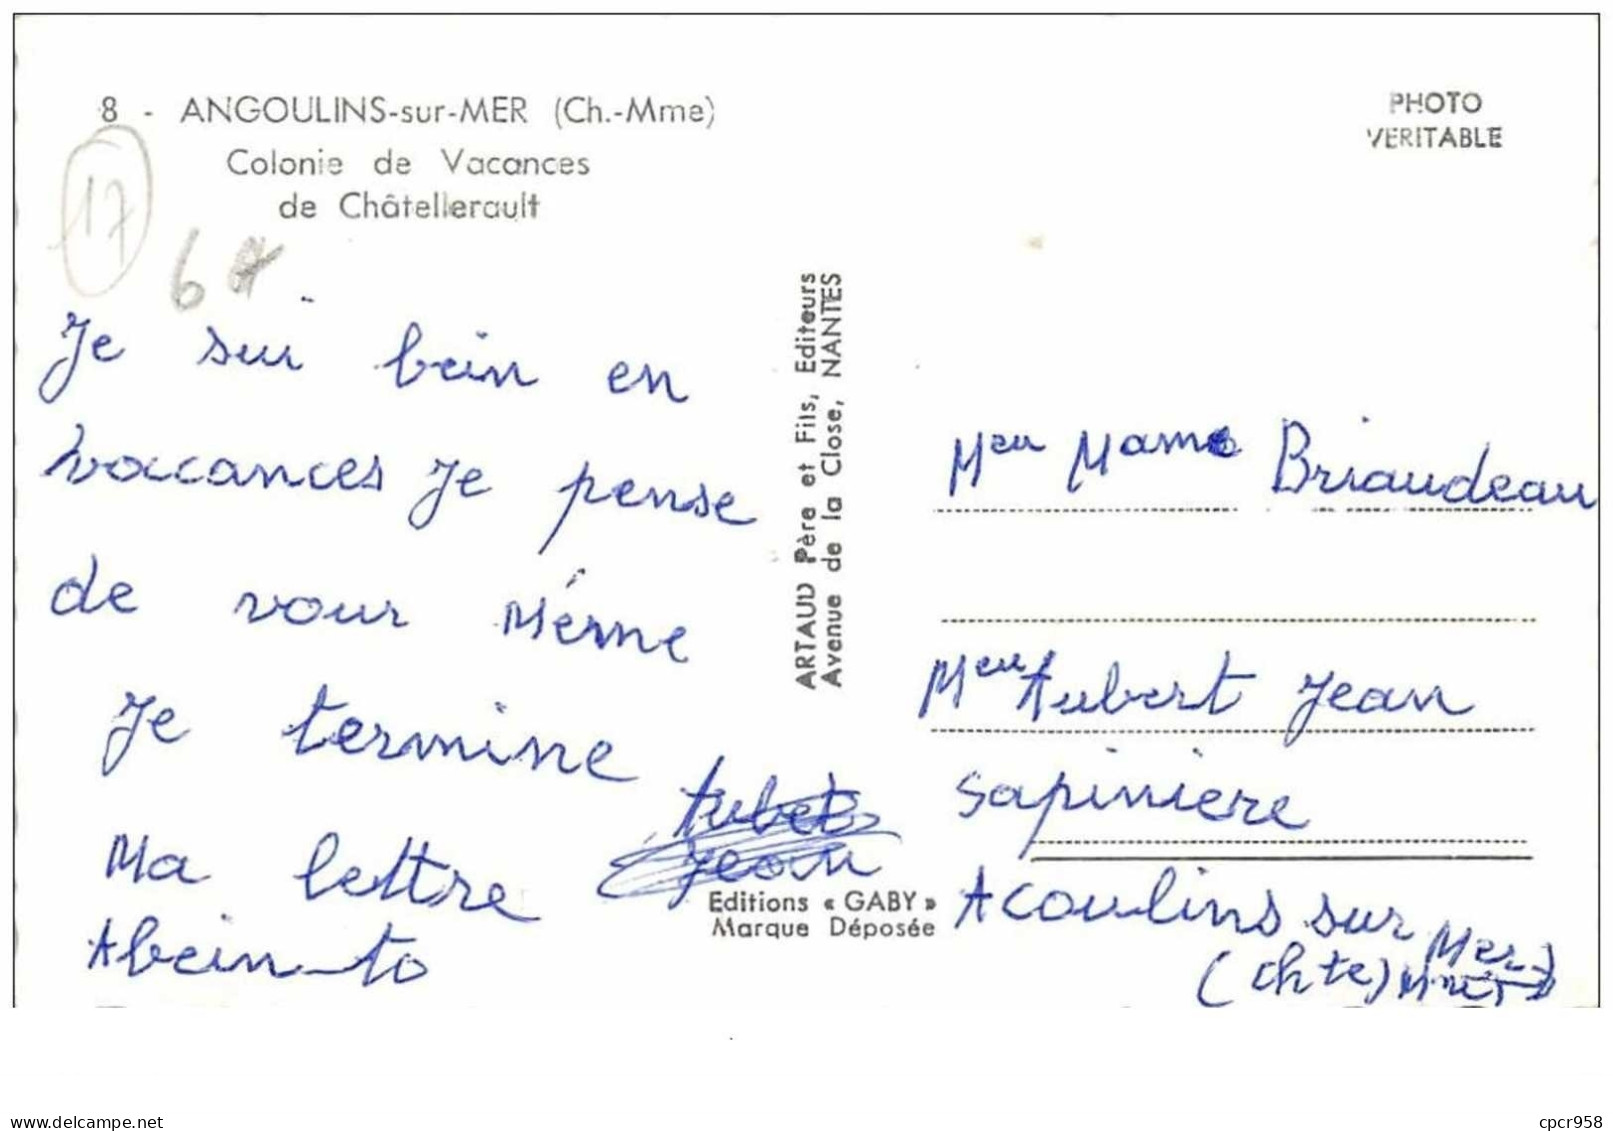 8 - ANGOULINS-sur-MER (Ch.-Mme)
Colonie de Vacances
de Châtellerault
PHOTO
VERITABLE
17
6
Je sui bein en
vacances Je pense
de vour Méme
Je termine
Ma lettre
Abein-to
Aubet
Jean
ARTAUD Père et Fils, Editeurs
Avenue de la Close, NANTES
Editions « GABY »
Marque Déposée
Meu Mame Briaudeau
Meu Aubert Jean
Sapiniere
Acoulins sur Mer
(Chte)
www.delcampe.net
cpcr958